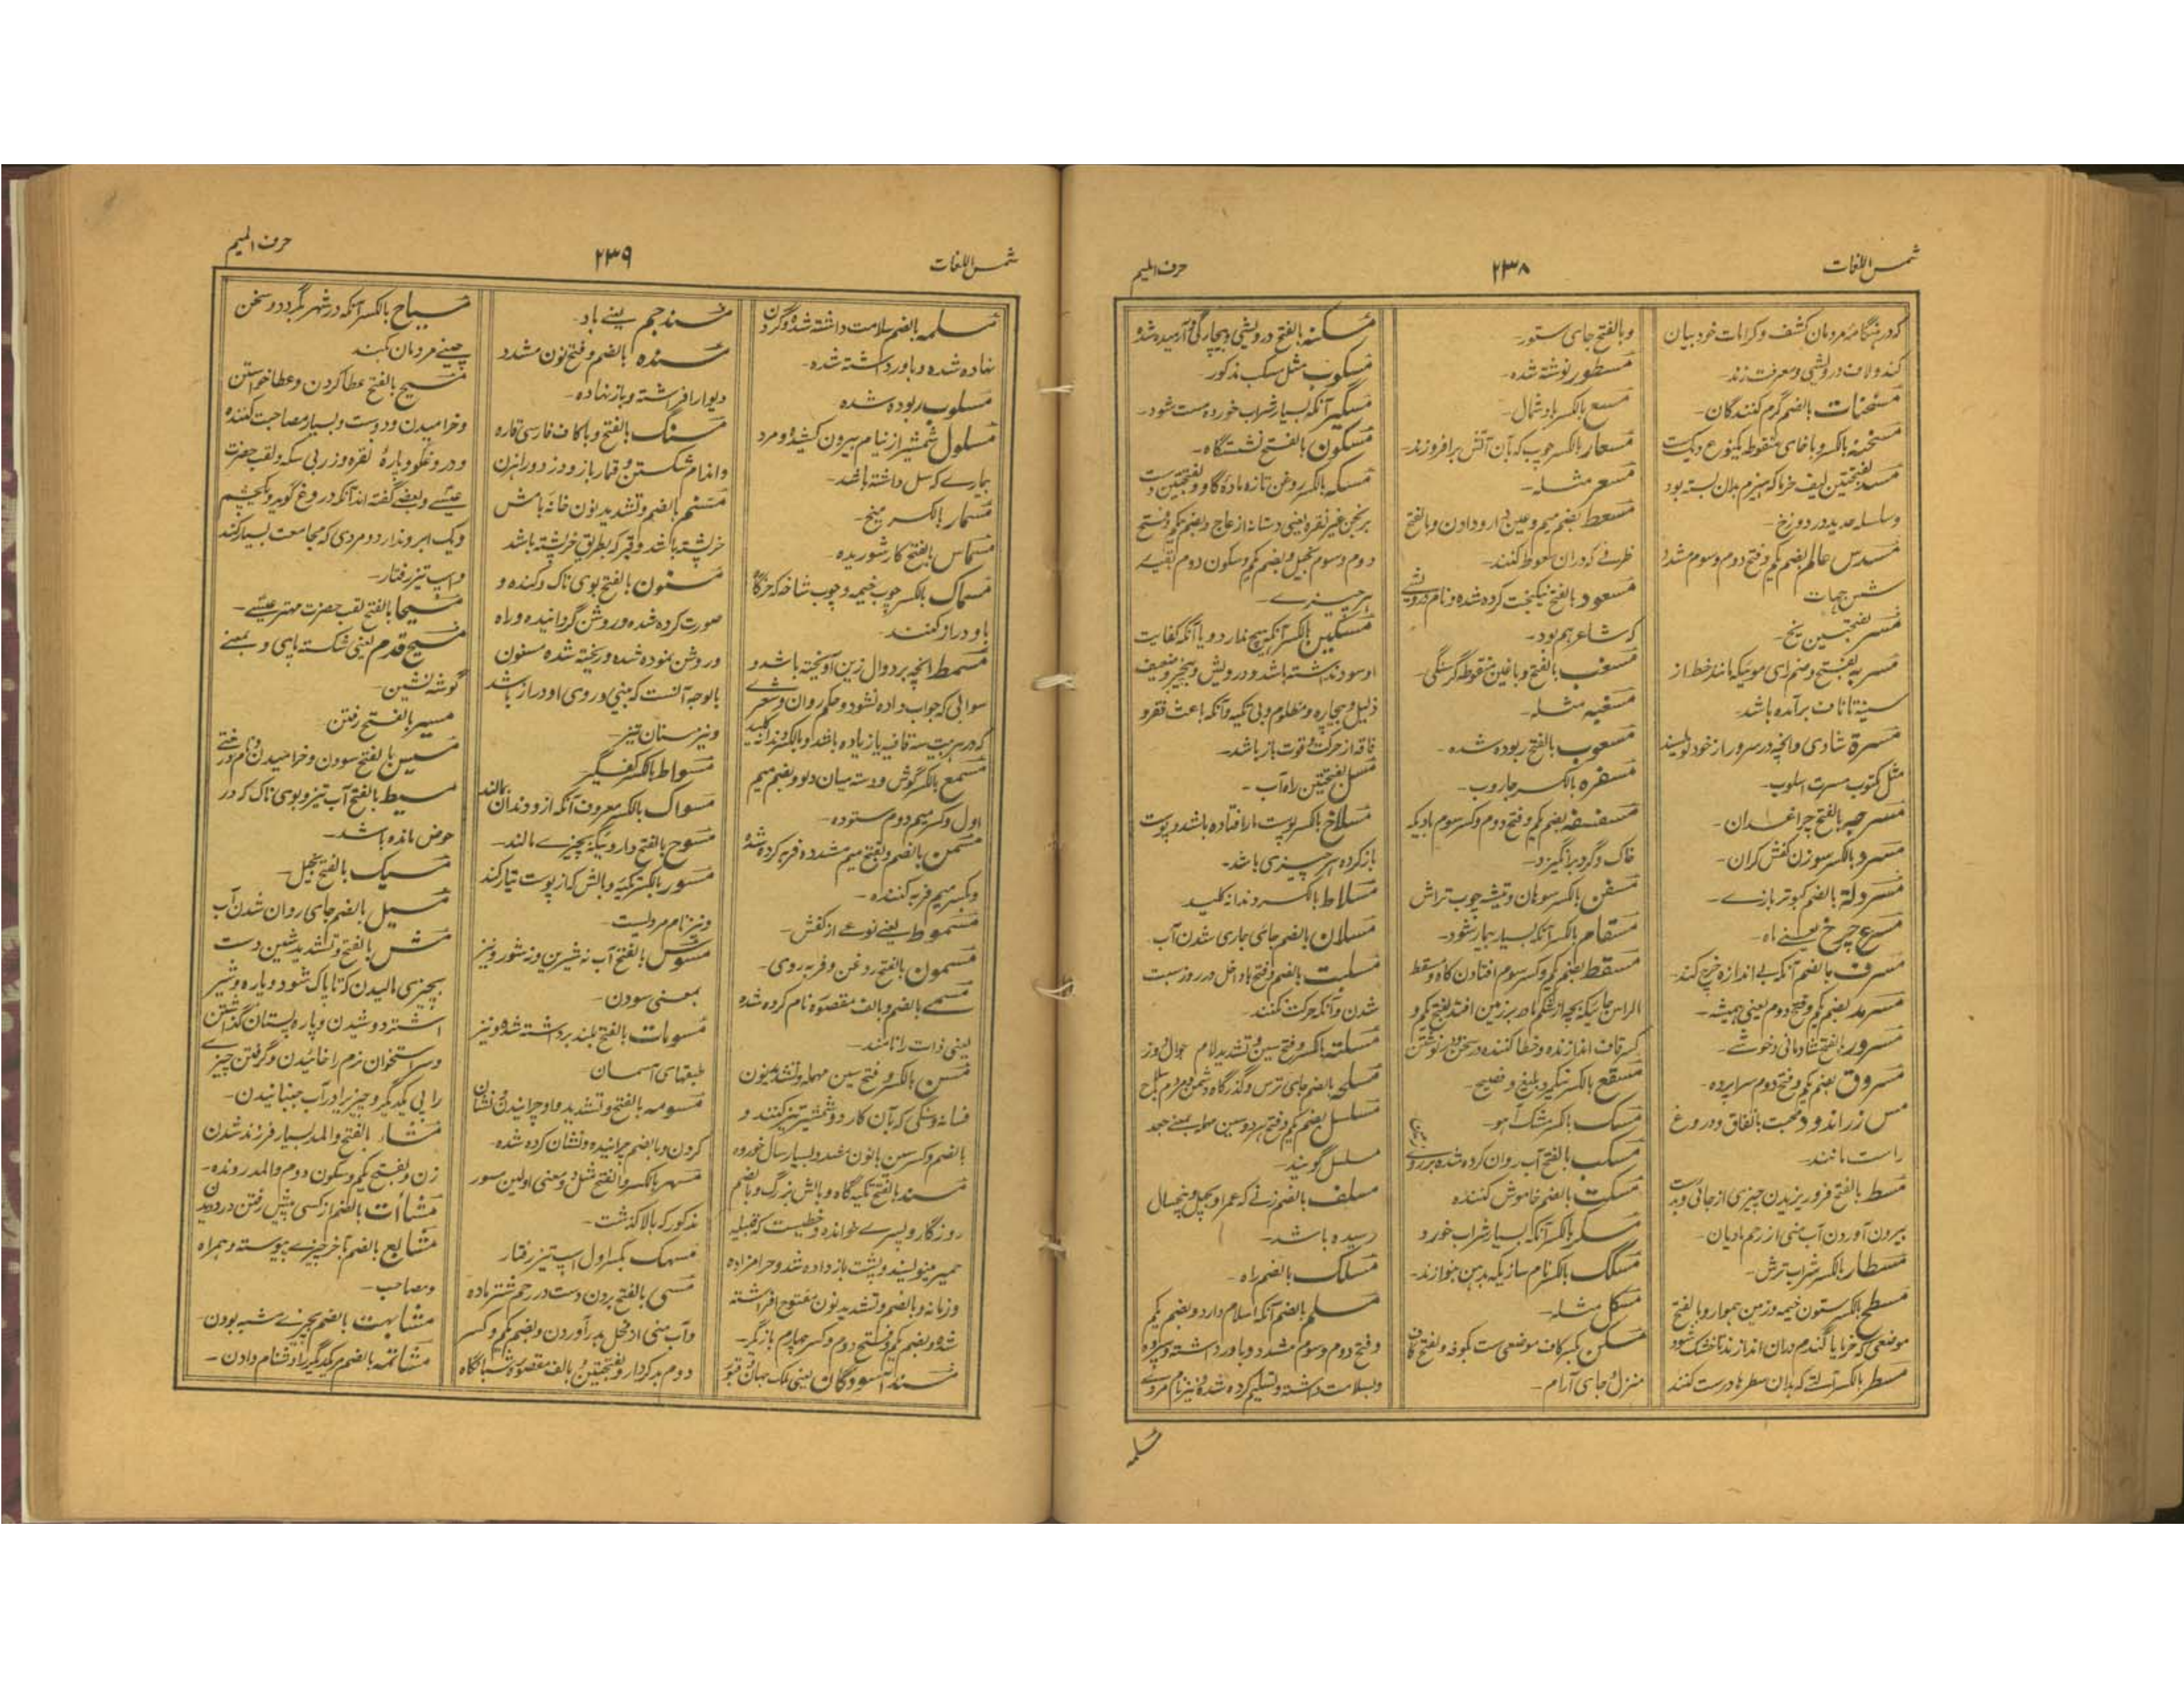 شمس اللغات
۲۳۸
حرف المیم
که در هنگامهٔ مردمان کشف و کرامات خود بیان
کند و لاف درویشی و معرفت زند-
مسخنات بالضم گرم کنندگان-
مسخنه بالکسر و با خای منقوطه یکنوع دیگ ست
مسد بفتحتین لیف خرما که هیزم بدان بسته بود
و سلسله حدید در دوزخ-
مسدس عالم بضم یکم و فتح دوم و سوم مشدد
شش جهات
مسر بفتحتین یخ-
مسربه بفتح و ضم رای موئیکه مانند خط از
سینه تا ناف برآمده باشد-
مسرة شادی و آنچه در سرور از خود نویسند
مثل مکتوب مسرت اسلوب-
مسرجه بالفتح چراغدان-
مسرد بالکسر سوزن کفش گران-
مسردلة بالضم کبوتر بازے-
مسرع چرخ یعنے ماه-
مسرف بالضم آنکه بے اندازه خرچ کند-
مسرمد بضم یکم و فتح دوم یعنی همیشه-
مسرور بالفتح شادمانی و خوشے-
مسروق بضم یکم و فتح دوم سراپرده-
مس زراندود محبت بانفاق و دروغ
راست مانند-
مسط بالفتح فرو ریزیدن چیزی از جائی و بدست
بیرون آوردن آب منی از رحم مادیان-
مسطار بالکسر شراب ترش-
مسطح بالکسر ستون خیمه و زمین هموار و بالفتح
موضعی که خرما یا گندم دران اندازند تا خشک شود
مسطر بالکسر آلتے که بدان سطرها درست کنند
و بالفتح جای ستور-
مسطور نوشته شده-
مسع بالکسر باد شمال-
مسعار بالکسر چوب که بآن آتش برافروزند-
مسعر مثله-
مسعط بضم میم و عین دارو دادن و بالفتح
ظرفے که دران سعوط کنند-
مسعود بالفتح نیکبخت کرده شده و نام درویشے
که شاعر هم بود-
مسغب بالفتح و با غین منقوطه گرسنگی-
مسغبه مثله-
مسعوب بالفتح ربوده شده-
مسفره بالکسر جاروب-
مسفسفه بضم یکم و فتح دوم و کسر سوم بادیکه
خاک و گرد برانگیزد-
مسفن بالکسر سوهان و تیشه چوب تراش
مسقام بالکسر آنکه بسیار بیمار شود-
مسقط بضم یکم و کسر سوم افتادن گاه و مسقط
الراس جائیکه بچه از شکم مادر بر زمین افتد بفتح یکم و
کسر قاف اندازنده و خطا کننده در سخن و نوشتن
مسقع بالکسر نیکو بلیغ و فصیح-
مسک بالکسر مشک آهو-
مسکب بالفتح آب روان کرده شده بر روے زمین
مسکت بالضم خاموش کننده
مسکر بالکسر آنکه بسیار شراب خورد
مسکک بالکسر نام سازیکه بدهن بنوازند-
مسکل مثله-
مسکن بکسر کاف موضعی ست بکوفه و بفتح کاف
منزل و جای آرام-
مسکنه بالفتح درویشی و بیچارگی و آرمیده شدو
مسکوب مثل مسکب مذکور-
مسکیر آنکه بسیار شراب خورده مست شود-
مسکون بالفتح نشستگاه-
مسکه بالکسر روغن تازه ماده گاو و بفتحتین دست
برنجن غیر نقره یعنی دستانه از عاج و بضم یکم و فتح
دوم و سوم بخیل و بضم یکم و سکون دوم بقیهٔ
هر چیزے-
مسکین بالکسر آنکه هیچ ندارد و یا آنکه کفایت
او سود نداشته باشد و درویش و بیخیر و ضعیف
ذلیل و بیچاره و مظلوم و بی تکیه و آنکه باعث فقر و
فاقه از حرکت و قوت باز باشد-
مسل بفتحتین راه آب-
مسلاخ بالکسر پوست مار افتاده باشد و پوست
باز کرده هر چیزی باشد-
مسلاط بالکسر دندانه کلید
مسلان بالضم جای جاری شدن آب
مسلبت بالضم و فتح با داخل در روز سبت
شدن و آنکه حرکت نکنند-
مسلته بالکسر و فتح سین و تشدید لام جوال دوز
مسلحه بالضم جای ترس و گذرگاه دشمن و مردم با سلاح
مسلسل بضم یکم و فتح هر دو سین مهمله بمعنے جعد
مسلسل گویند-
مسلف بالضم زنے که عمر او بچهل و پنج سال
رسیده باشد-
مسلک بالضم راه-
مسلم بالضم آنکه اسلام دارد و بضم یکم
و فتح دوم و سوم مشدد و باور داشته و سپرده
و بسلامت داشته و تسلیم کرده شده و نیز نام مردے
مسلمه
شمس اللغات
۲۳۹
حرف المیم
مسلمه بالضم سلامت داشته شده و گردن
نهاده شده و باور داشته شده-
مسلوب ربوده شده
مسلول شمشیر از نیام بیرون کشیده و مرد
بیمارے که سل داشته باشد-
مسمار بالکسر میخ-
مسماس بالفتح کار شوریده-
مسماک بالکسر چوب خیمه و چوب شاخه که خرگاه
باو دراز کنند-
مسمط آنچه بر دوال زین آویخته باشد و
سوالی که جواب داده نشود و حکم روان و شعرے
که در هر بیت سه قافیه یا زیاده باشد و بالکسر دندانه کلید
مسمع بالکسر گوش و دسته میان دلو و بضم میم
اول و کسر میم دوم ستوده-
مسمن بالضم و بفتح میم مشدده فربه کرده شده
و بکسر میم فربه کننده-
مسموط یعنے نوعے از کفش-
مسمون بالفتح روغن و فربه روی-
مسمے بالضم و بالف مقصوره نام کرده شده
یعنی ذات را نامند-
مسن بالکسر و فتح سین مهمله و تشدید نون
فسانه و سنگی که بآن کارد و شمشیر تیز کنند و
بالضم و کسر سین با نون مشدد بسیار سال خورده
مسند بالفتح تکیه گاه و بالش بزرگ و بالضم
روزگار و پسرے خوانده و خطیست که قبیله
حمیر مینویسند و پشت باز داده شده و حرامزاده
و زمانه و بالضم و تشدید نون مفتوح افراشته
شده و بضم یکم و فتح دوم و کسر چهارم بازیگر-
مسند آسودگان یعنی ملک جهان و قبور
مسند جم یعنے باد-
مسنده بالضم و فتح نون مشدد
دیوار افراشته و باز نهاده-
مسنگ بالفتح و با کاف فارسی تقاره
و اندام شکستن و قمار باز و دزد و راهزن
مسنم بالضم و تشدید نون خانه بامش
خرپشته باشد و قبر که بطریق خرپشته باشد
مسنون بالفتح بوی ناک و گنده و
صورت کرده شده و روشن گردانیده و راه
و روشن نموده شده و ریخته شده مسنون
بالوجه آنست که بینی و روی او دراز باشد
و نیز سنان تیز-
مسواط بالکسر کفگیر
مسواک بالکسر معروف آنکه ازو دندان مالند
مسوح بالفتح داروئیکه بچیزے مالند-
مسور بالکسر تکیه و بالش که از پوست تیار کند
و نیز نام مردیست-
مسوس بالفتح آب نه شیرین و نه شور و نیز
بمعنی سودن-
مسومات بالفتح بلند برداشته شده و نیز
طبقهای آسمان
مسومه بالفتح و تشدید واو چرانیدن و نشان
کردن و بالضم چرانیده و نشان کرده شده-
مسهر بالکسر و بالفتح مثل و معنی اولین مسور
مذکور که بالا گذشت-
مسهک بکسر اول اسپ تیز رفتار
مسی بالفتح بردن دست در رحم شتر ماده
و آب منی از محل بدر آوردن و بضم یکم و کسر
دوم بد کردار و بفتحتین و بالف مقصوره شبانگاه
مسیاح بالکسر آنکه در شهر بگردد و سخن
چینے مردمان کند
مسیح بالفتح عطا کردن و عطا خواستن
و خرامیدن و دوست و بسیار مصاحبت کننده
و دروغگو و پارهٔ نقره و زر بی سکه و لقب حضرت
عیسے و بعضے گفته اند آنکه دروغ گوید و یکچشم
و یک ابرو ندارد و مردی که مجامعت بسیار کند
و اسپ تیز رفتار-
مسیحا بالفتح لقب حضرت مهتر عیسے-
مسیح قدم یعنی شکسته پایی و بمعنے
گوشه نشین-
مسیر بالفتح رفتن
مسیس بالفتح سودن و خرامیدن و نام درختے
مسیط بالفتح آب تیز و بوی ناک که در
حوض مانده باشد-
مسیک بالفتح بخیل-
مسیل بالضم جای روان شدن آب
مش بالفتح و تشدید شین دست
بچیزی مالیدن که تا پاک شود و پاره و شیر
اشتر دوشیدن و پاره پستان گذاشتن
و سر استخوان نرم را خائیدن و گرفتن چیزے
را پی یکدیگر و چیزیرا در آب جنبانیدن-
مشاء بالفتح و المد بسیار فرزند شدن
زن و بفتح یکم و سکون دوم و المد رونده-
مشاأت بالضم از کسی پیش رفتن در دویدن
مشایع بالضم بآخر چیزے پیوسته و همراه
و مصاحب-
مشابهت بالضم بچیزے شبیه بودن-
مشاتمه بالضم مر یکدیگر را دشنام دادن-